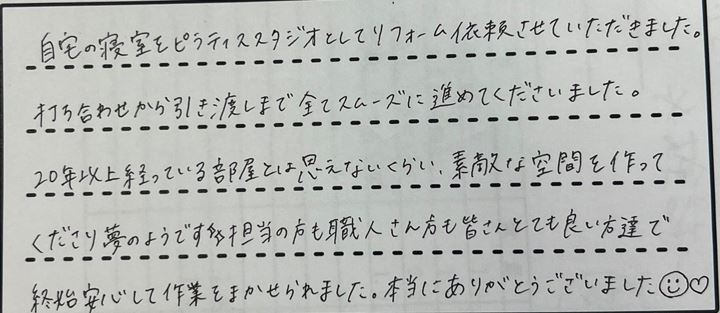 自宅の寝室をピラティススタジオとしてリフォーム依頼させていただきました。
打ち合わせから引き渡しまで全てスムーズに進めてくださいました。
20年以上経っている部屋とは思えないくらい、素敵な空間を作って
くださり夢のようです!!担当の方も職人さん方も皆さんとても良い方達で
終始安心して作業をまかせられました。本当にありがとうございました☺♡